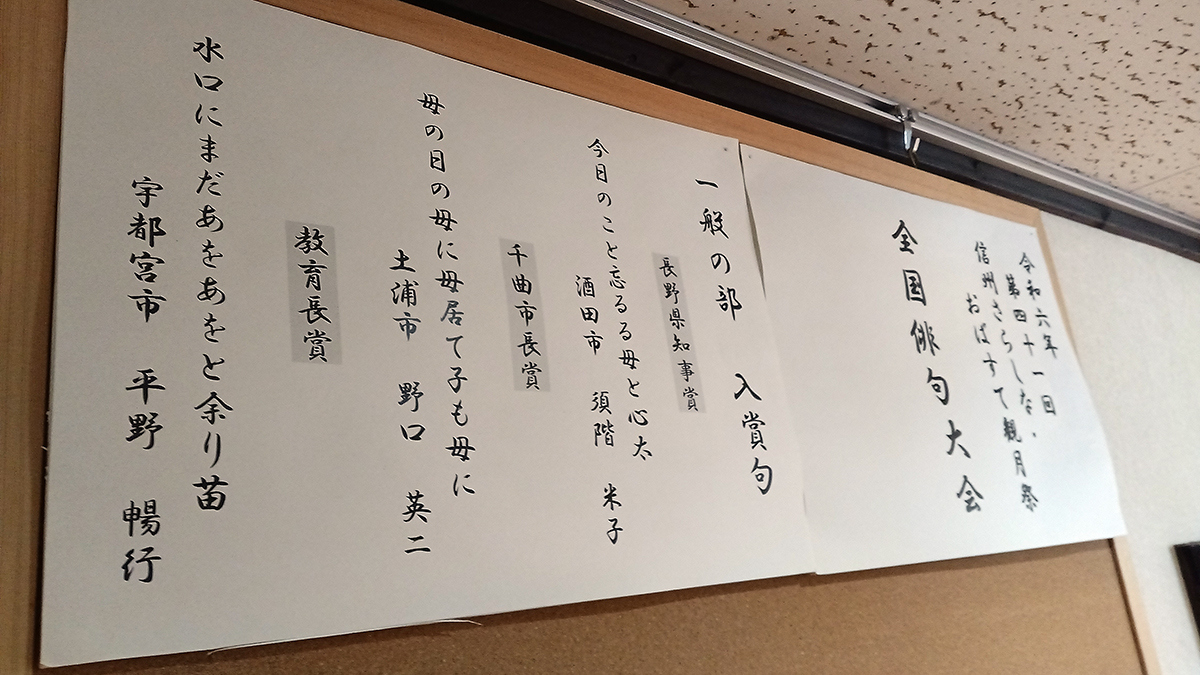 令和六年
第四十一回
信州さらしな・
おばすて観月祭
全国俳句大会
一般の部　入賞句
長野県知事賞
今日のこと忘るる母と心太
酒田市　須階　米子
千曲市長賞
母の日の母に母居て子も母に
土浦市　野口　英二
教育長賞
水口にまだあをあをと余り苗
宇都宮市　平野　暢行